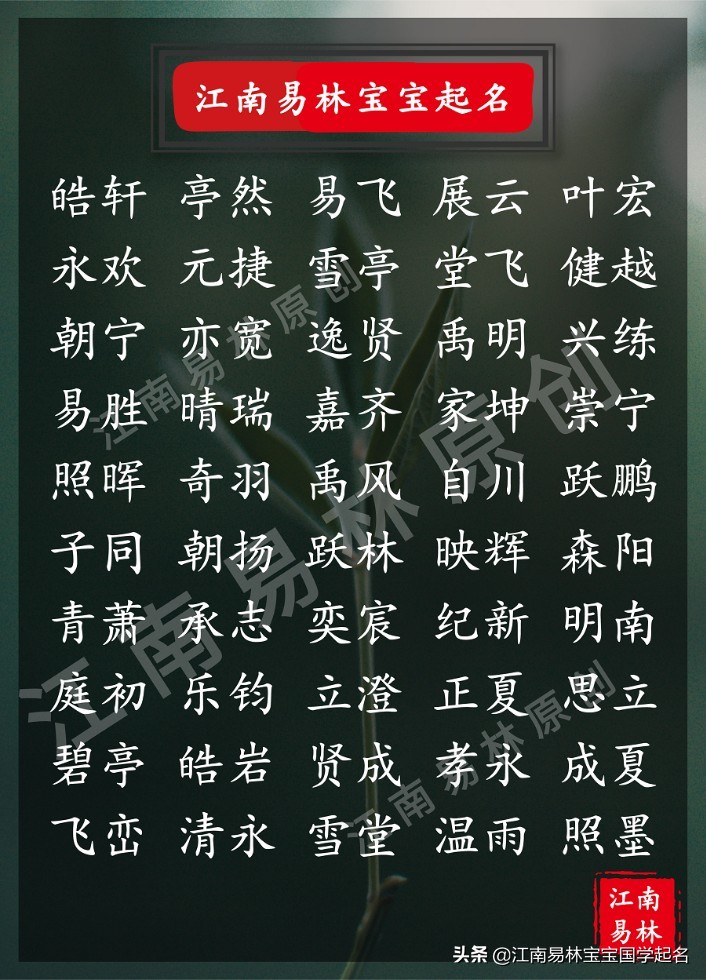 江南易林宝宝起名
皓轩 亭然 易飞 展云 叶宏
永欢 元捷 雪亭 堂飞 健越
朝宁 亦宽 逸贤 禹明 兴练
易胜 晴瑞 嘉齐 家坤 崇宁
照晖 奇羽 禹风 自川 跃鹏
子同 朝扬 跃林 映辉 森阳
青萧 承志 奕宸 纪新 明南
庭初 乐钧 立澄 正夏 思立
碧亭 皓岩 贤成 孝永 成夏
飞峦 清永 雪堂 温雨 照墨
江南易林原创
江南易林原创
江南易林原创
江南
易林
头条 @江南易林宝宝国学起名